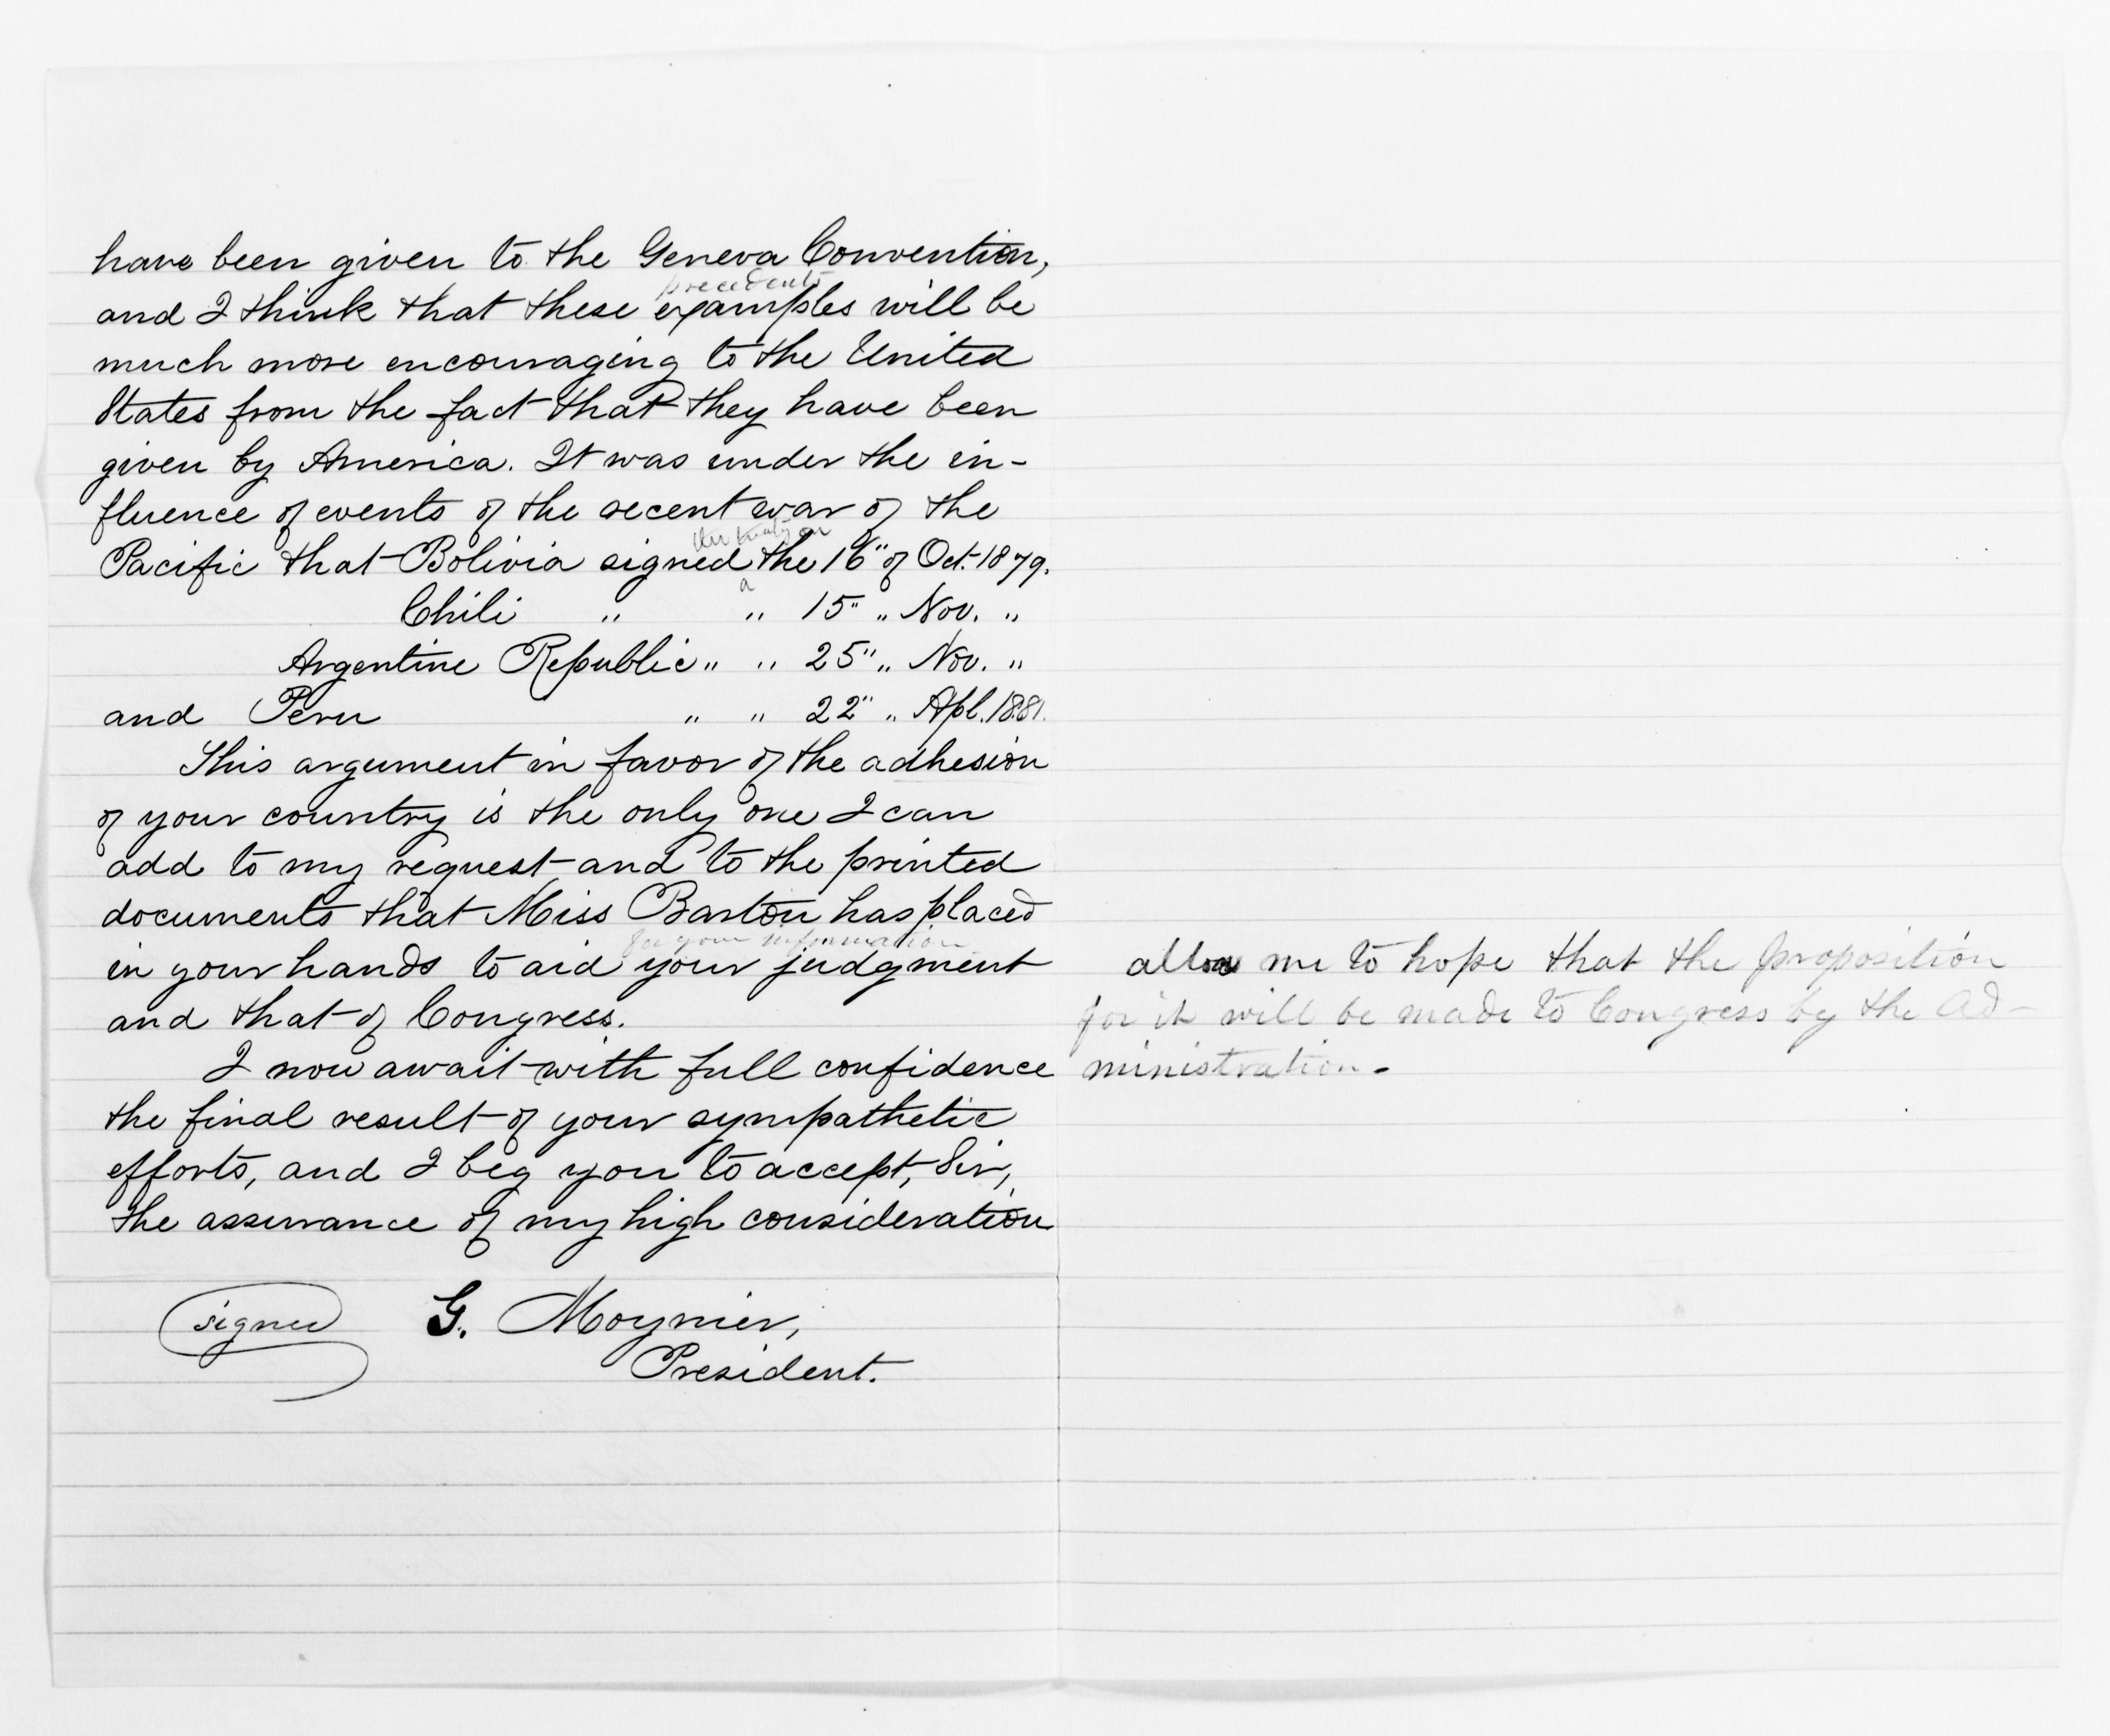 have been given to the Geneva Convention,
precedents
and I think that these examples will be
much more encouraging to the United
States from the fact that they have been
given by America. It was under the in-
fluence of events of the recent war of the
the treaty on
Pacific that Bolivia signed the 16" of Oct. 1879.
a
Chili " " 15" " Nov. "
Argentine Republic " " 25" " Nov. "
and Peru " " 22" " Apl. 1881.
This argument in favor of the adhesion
of your country is the only one I can
add to my request and to the printed
documents that Miss Barton has placed
for your information
in your hands to aid your judgment
and that of Congress.
I now await with full confidence
the final result of your sympathetic
efforts, and I beg you to accept, Sir,
the assurance of my high consideration
signed G. Moynier,
President.
allow me to hope that the proposition
for it will be made to Congress by the Ad-
ministration.